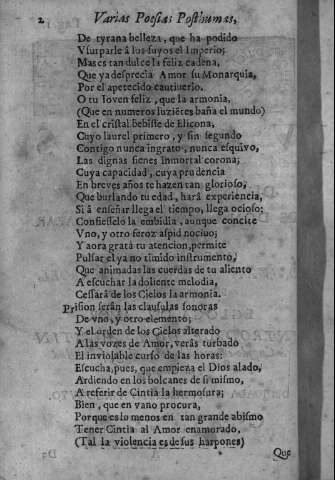 2 Varias Poesias Posthumas,
De tyrana belleza, que ha podido
Vsurparle à los suyos el Imperio;
Mas es tan dulce la feliz cadena,
Que ya desprecia Amor su Monarquia,
Por el apetecido cautiuerio.
O tu Iouen feliz, que la armonia,
(Que en numeros luzientes baña el mundo)
En el cristal bebiste de Elicona,
Cuyo laurel primero, y sin segundo
Contigo nunca ingrato, nunca esquivo,
Las dignas sienes inmortal corona;
Cuya capacidad, cuya prudencia
En breves años te hazen tan glorioso,
Que burlando tu edad, hará experiencia,
Si à enseñar llega el tiempo, llega ocioso:
Confiesselo la embidia, aunque concite
Vno, y otro feroz aspid nociuo;
Y aora grata tu atencion, permite
Pulsar el ya no timido instrumento,
Que animadas las cuerdas de tu aliento
A escuchar la doliente melodia,
Cessará de los Cielos la armonia.
Prision serán las clausulas sonoras
De vno, y otro elemento;
Y el orden de los Cielos alterado
A las vozes de Amor, verás turbado
El inviolable curso de las horas:
Escucha, pues, que empieza el Dios alado,
Ardiendo en los bolcanes de si mismo,
A referir de Cintia la hermosura;
Bien, que en vano procura,
Porque es lo menos en tan grande abismo
Tener Cintia al Amor enamorado,
(Tal la violencia es de sus harpones)
Que